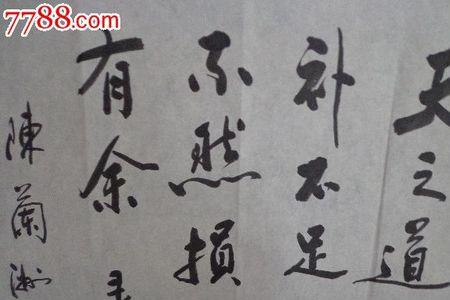 7788.com
天之道
补不足
不然損
有余
陳蘭洲